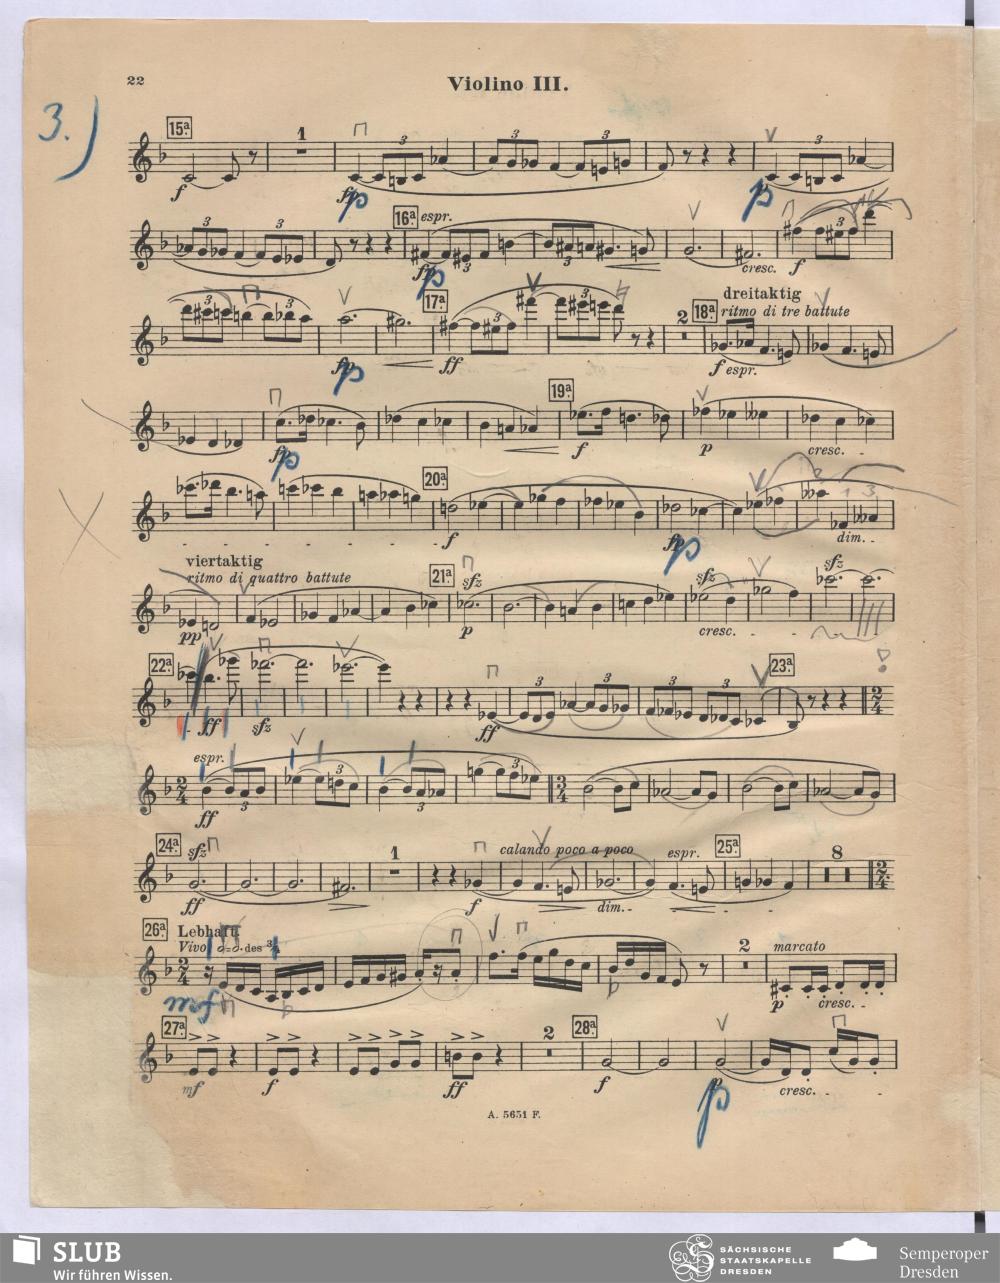 22
Violino III.
3.)
15a
1
3
3
3
3
f
fp
p
p
3
3
16a espr.
3
3
3
fp
p
cresc.
f
3
3
17a
3
3
2
18a
dreitaktig
ritmo di tre battute
fp
p
ff
f espr.
19a
fp
p
f
p
cresc. -
20a
f
fp
p
1 3
dim. -
viertaktig
ritmo di quattro battute
21a
sfz
sfz
sfz
pp
p
cresc. -
22a
3
3
3
3
23a
2/4
ff
sfz
ff
2/4
espr.
3
3
3
3
3/4
ff
24a
sfz
1
calando poco a poco
espr.
25a
8
2/4
ff
f
dim. -
26a
Lebhaft.
Vivo
des 3/4
2/4
2
marcato
p
cresc. -
27a
2
28a
mf
f
ff
f
p
p
cresc. -
A. 5651 F.
SLUB
Wir führen Wissen.
SÄCHSISCHE
STAATSKAPELLE
DRESDEN
Semperoper
Dresden